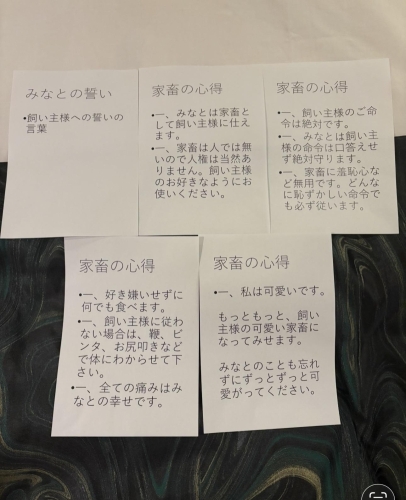 みなとの誓い
•飼い主様への誓いの
言葉
家畜の心得
•一、みなとは家畜と
して飼い主様に仕え
ます。
•一、家畜は人では無
いので人権は当然あ
りません。飼い主様
のお好きなようにお
使いください。
家畜の心得
•一、飼い主様のご命
令は絶対です。
•一、みなとは飼い主
様の命令は口答えせ
ず絶対守ります。
•一、家畜に羞恥心な
ど無用です。どんな
に恥ずかしい命令で
も必ず従います。
家畜の心得
•一、好き嫌いせずに
何でも食べます。
•一、飼い主様に従わ
ない場合は、鞭、ビ
ンタ、お尻叩きなど
で体にわからせて下
さい。
•一、全ての痛みはみ
なとの幸せです。
家畜の心得
•一、私は可愛いです。
もっともっと、飼い
主様の可愛い家畜に
なってみせます。
みなとのことも忘れ
ずにずっとずっと可
愛がってください。